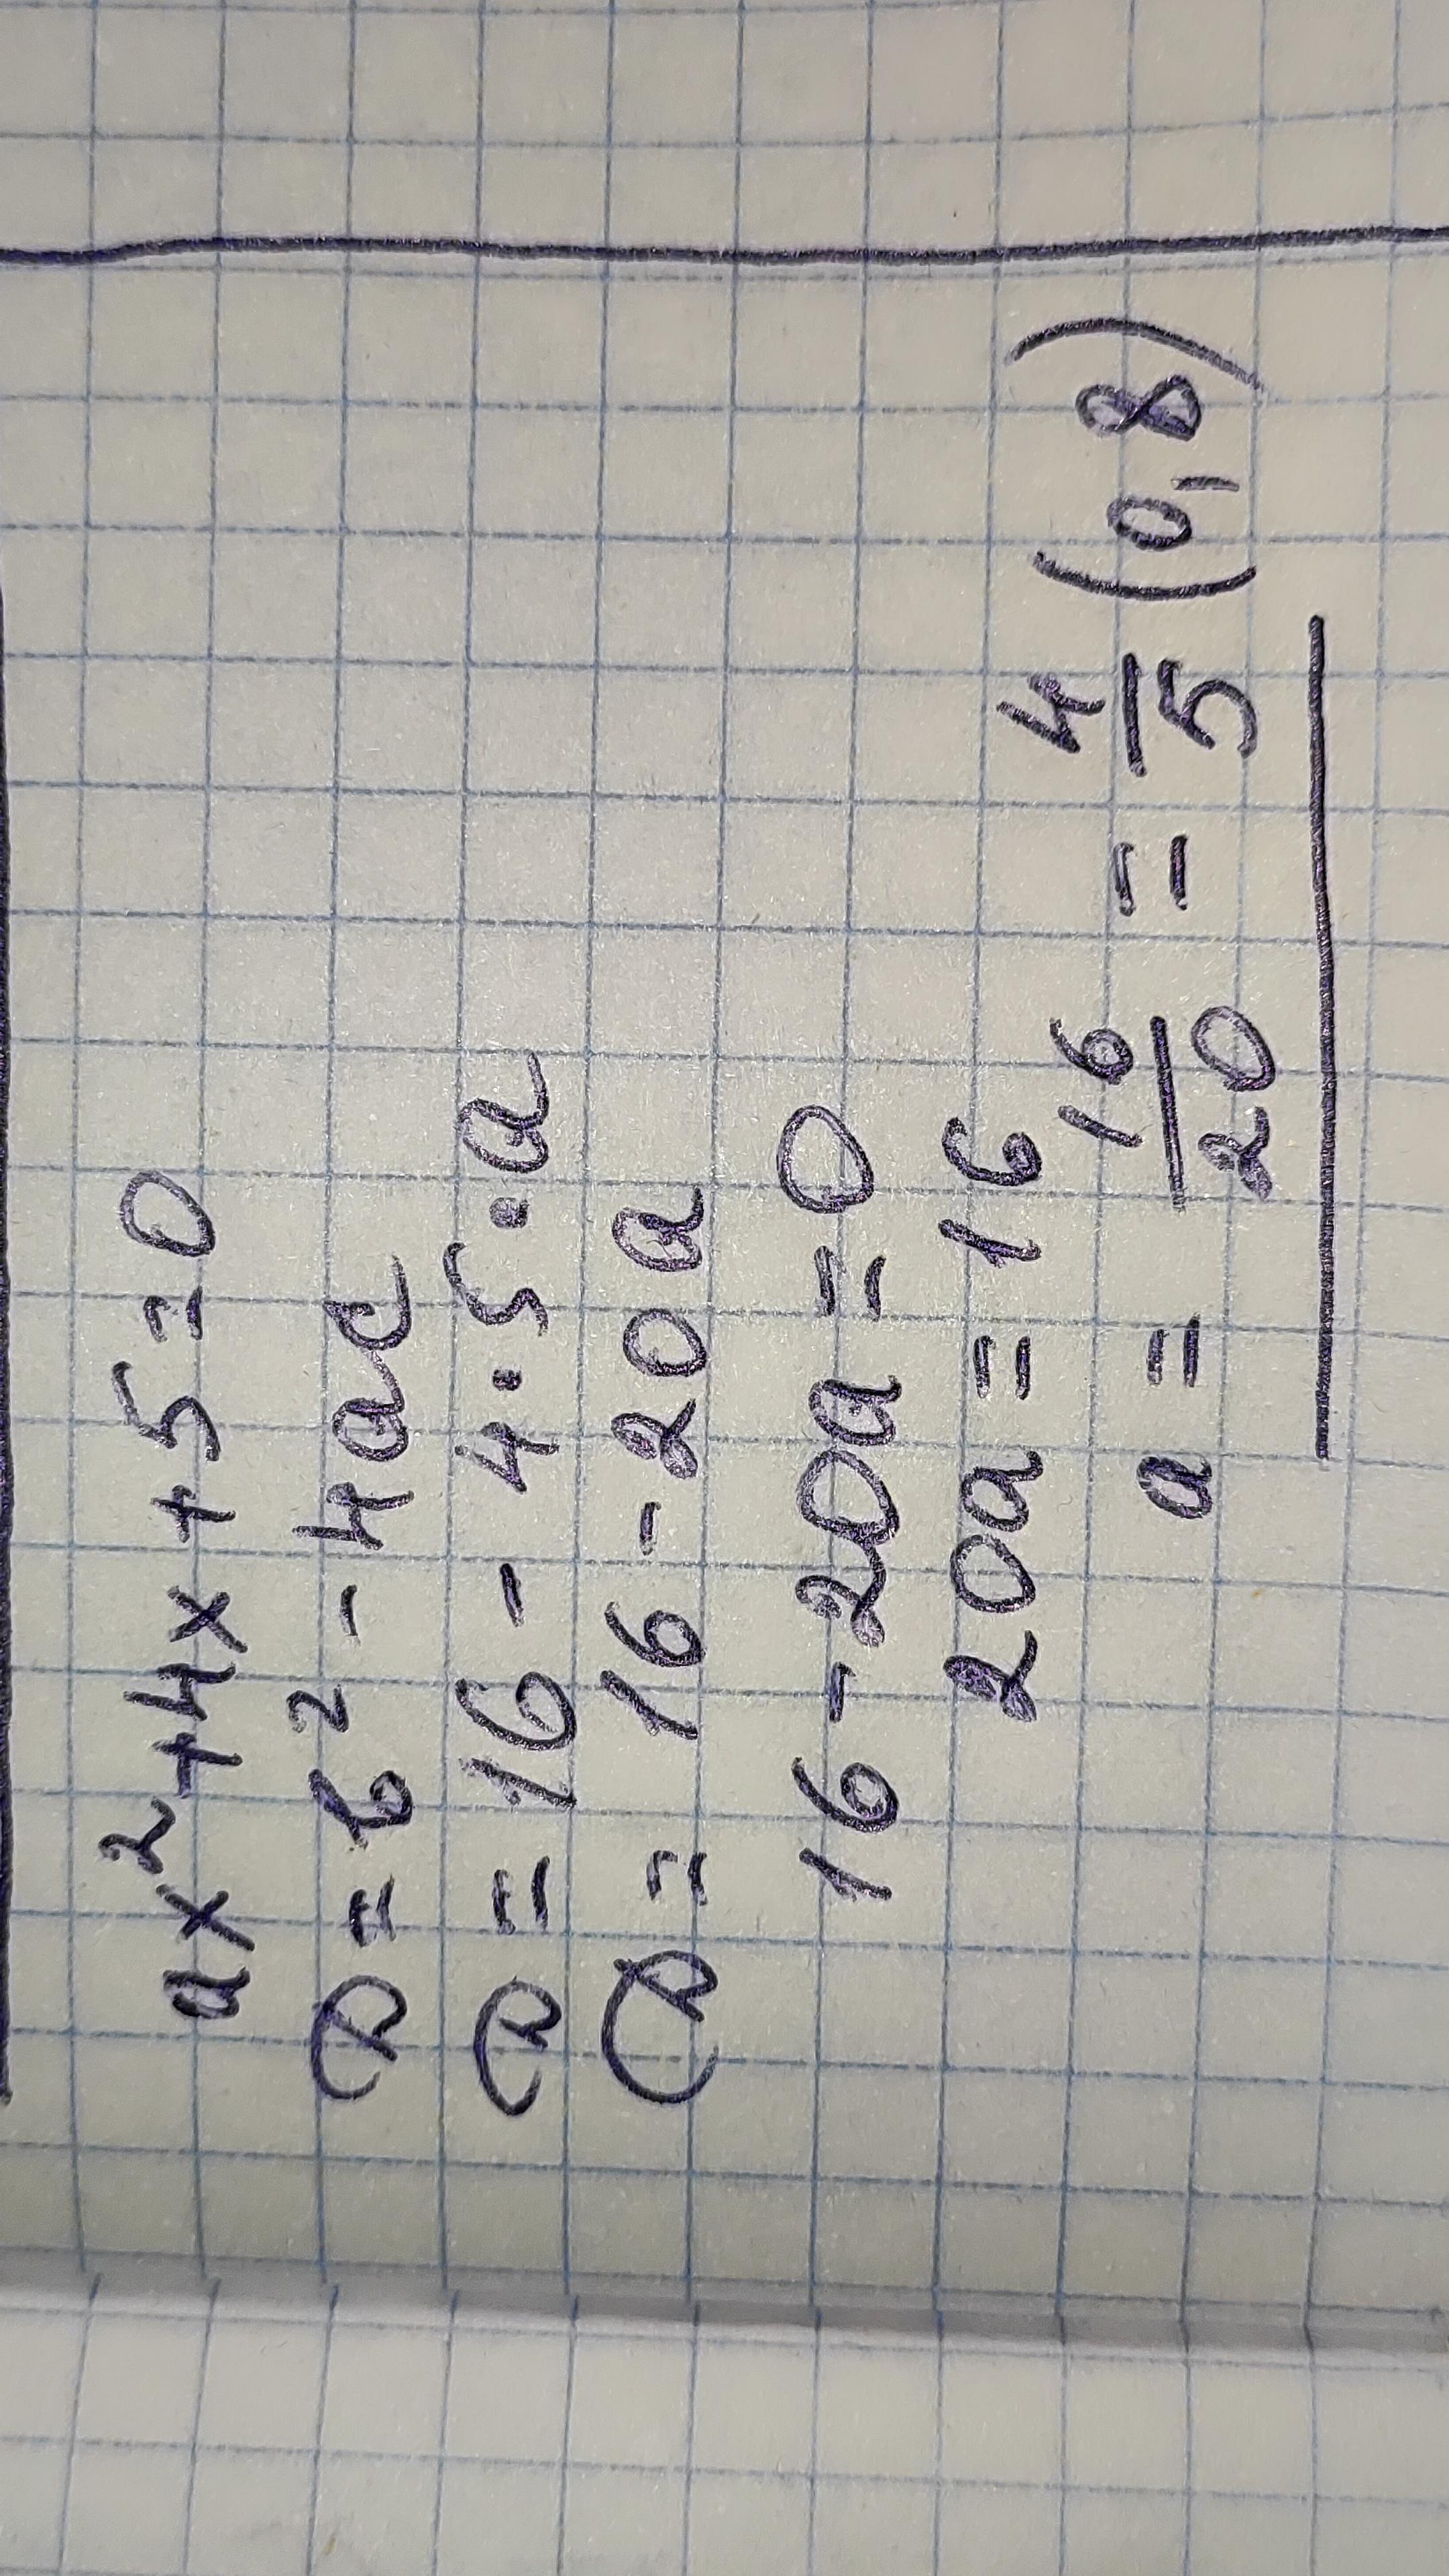 ax² + 4x + 5 = 0
D = b² - 4ac
D = 16 - 4·5·a
D = 16 - 20a
16 - 20a = 0
20a = 16
a = 16/20 = 4/5 (0,8)